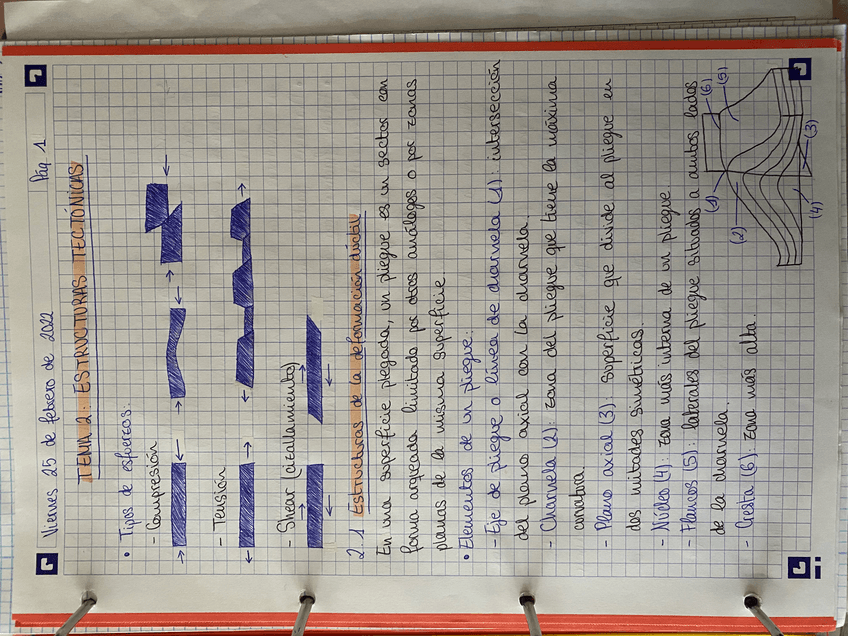 Viernes 25 de febrero de 2022 Pág. 1
TEMA 2: ESTRUCTURAS TECTÓNICAS
• Tipos de esfuerzos.
- Compresión
- Tensión
- Shear (cizallamiento)
2.1 Estructuras de la deformación dúctil
En una superficie plegada, un pliegue es un sector con
forma arqueada limitado por otros análogos o por zonas
planas de la misma superficie.
• Elementos de un pliegue:
- Eje de pliegue o línea de charnela (1): intersección
del plano axial con la charnela.
- Charnela (2): zona del pliegue que tiene la máxima
curvatura.
- Plano axial (3): superficie que divide al pliegue en
dos mitades simétricas.
- Núcleo (4): zona más interna de un pliegue
- Flancos (5): laterales del pliegue situados a ambos lados
de la charnela.
- Cresta (6): zona más alta.
(1)
(2)
(3)
(4)
(5)
(6)